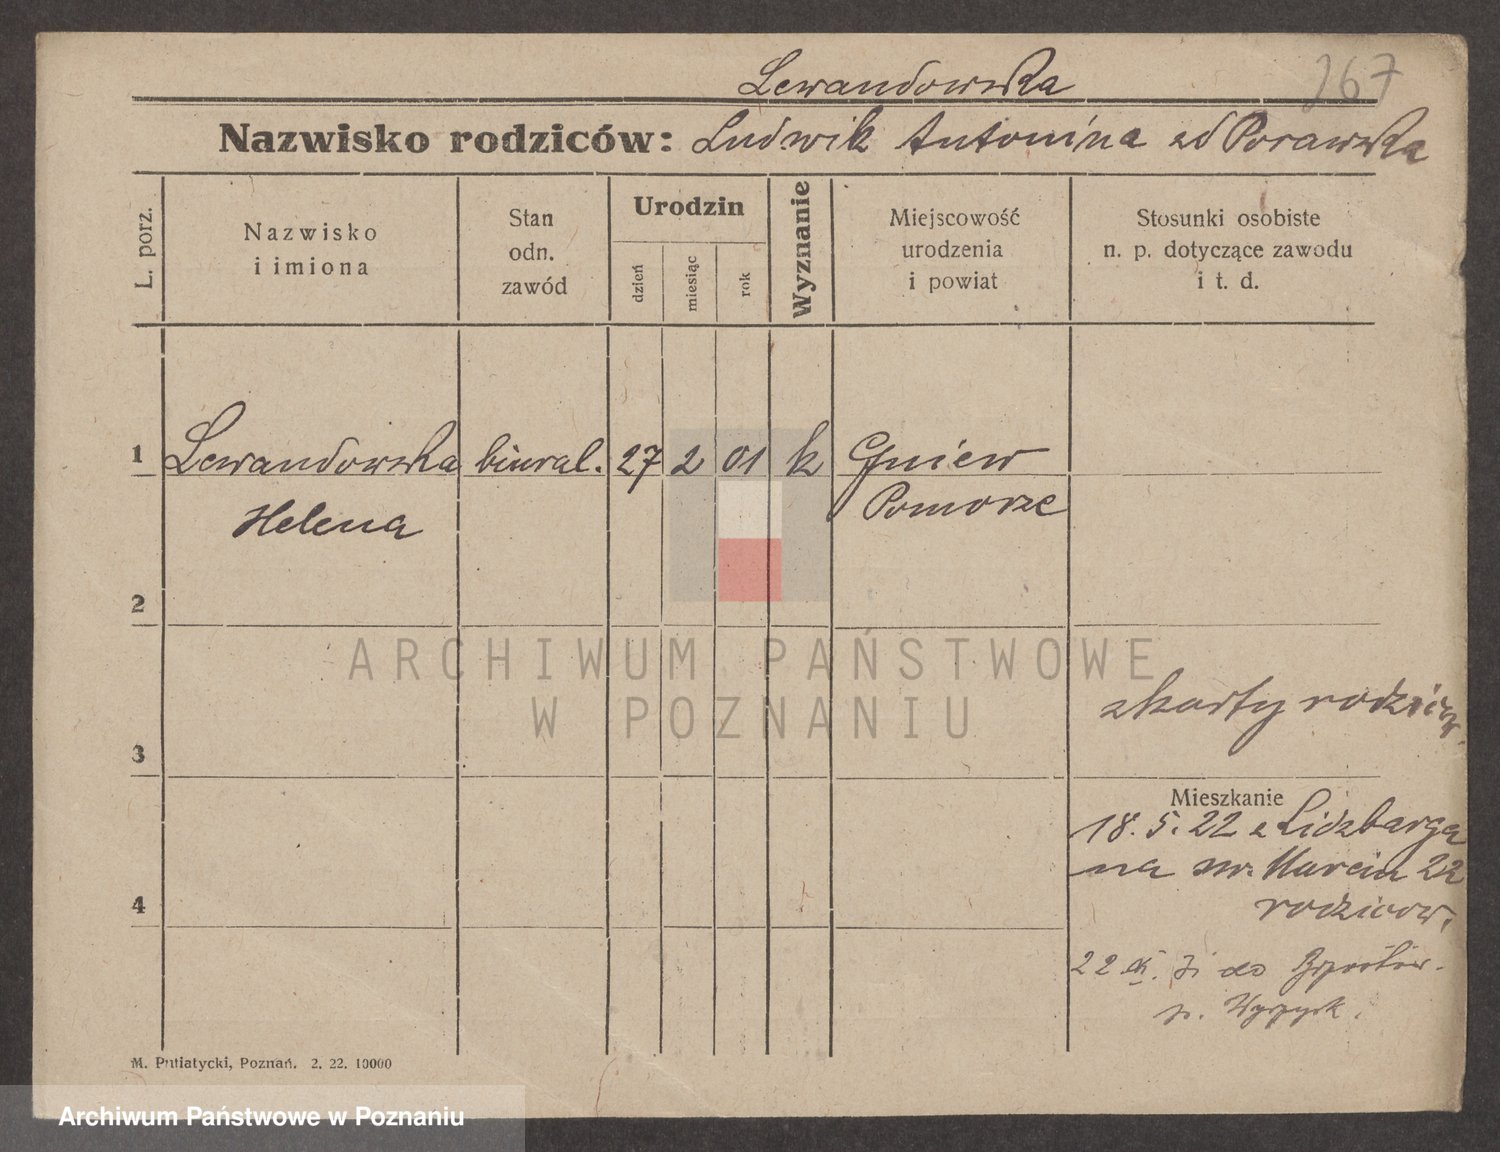 267
Lewandowska
Nazwisko rodziców: Ludwik Antonina zd Porawska
L. porz.
Nazwisko
i imiona
Stan
odn.
zawód
Urodzin
dzień
miesiąc
rok
Wyznanie
Miejscowość
urodzenia
i powiat
Stosunki osobiste
n. p. dotyczące zawodu
i t. d.
1 Lewandowska biural. 27 2 01 k Gniew
Helena Pomorze
2
ARCHIWUM PAŃSTWOWE
W POZNANIU
z karty rodziców.
3
Mieszkanie
18. 5. 22 z Lidzbarga
na sw. Marcin 22
4
rodzicow.
22 do
p. Wyrzysk.
M. Putiatycki, Poznań. 2. 22. 10000
Archiwum Państwowe w Poznaniu